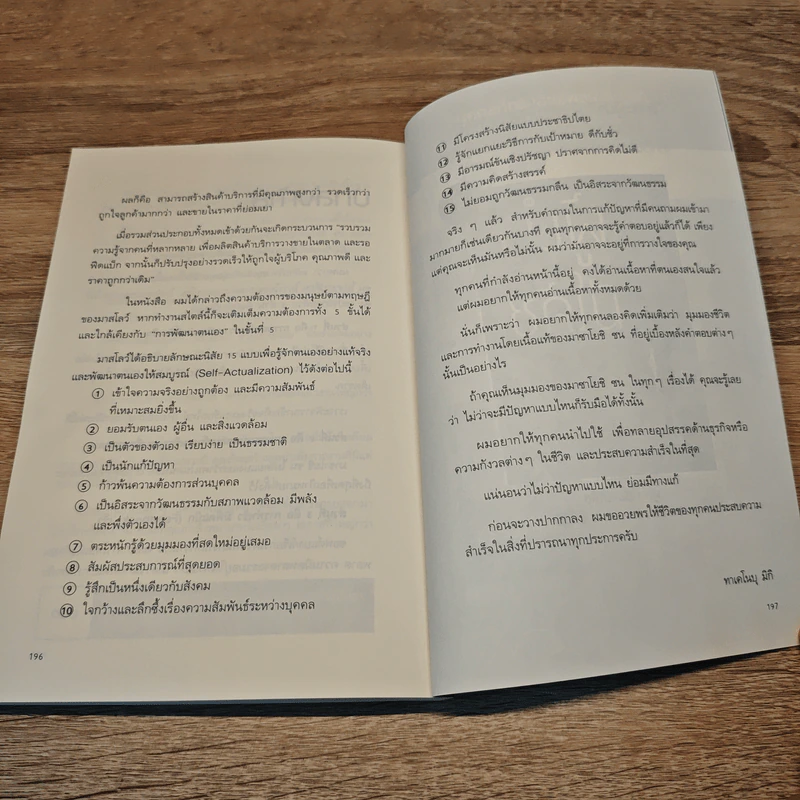 ผลก็คือ สามารถสร้างสินค้าบริการที่มีคุณภาพสูงกว่า รวดเร็วกว่า
ถูกใจลูกค้ามากกว่า และขายในราคาที่ย่อมเยา
เมื่อรวมส่วนประกอบทั้งหมดเข้าด้วยกันจะเกิดกระบวนการ "รวบรวม
ความรู้จากคนที่หลากหลาย เพื่อผลิตสินค้าบริการวางขายในตลาด และรอ
ฟีดแบ็ก จากนั้นก็ปรับปรุงอย่างรวดเร็วให้ถูกใจผู้บริโภค คุณภาพดี และ
ราคาถูกกว่าเดิม"
ในหนังสือ ผมได้กล่าวถึงความต้องการของมนุษย์ตามทฤษฎี
ของมาสโลว์ หากทำงานสไตล์นี้ก็จะเติมเต็มความต้องการทั้ง 5 ขั้นได้
และใกล้เคียงกับ "การพัฒนาตนเอง" ในขั้นที่ 5
มาสโลว์ได้อธิบายลักษณะนิสัย 15 แบบเพื่อรู้จักตนเองอย่างแท้จริง
และพัฒนาตนเองให้สมบูรณ์ (Self-Actualization) ไว้ดังต่อไปนี้
① เข้าใจความจริงอย่างถูกต้อง และมีความสัมพันธ์
ที่เหมาะสมยิ่งขึ้น
② ยอมรับตนเอง ผู้อื่น และสิ่งแวดล้อม
③ เป็นตัวของตัวเอง เรียบง่าย เป็นธรรมชาติ
④ เป็นนักแก้ปัญหา
⑤ ก้าวพ้นความต้องการส่วนบุคคล
⑥ เป็นอิสระจากวัฒนธรรมกับสภาพแวดล้อม มีพลัง
และพึ่งตัวเองได้
⑦ ตระหนักรู้ด้วยมุมมองที่สดใหม่อยู่เสมอ
⑧ สัมผัสประสบการณ์ที่สุดยอด
⑨ รู้สึกเป็นหนึ่งเดียวกับสังคม
⑩ ใจกว้างและลึกซึ้งเรื่องความสัมพันธ์ระหว่างบุคคล
196
⑪ มีโครงสร้างนิสัยแบบประชาธิปไตย
⑫ รู้จักแยกแยะวิธีการกับเป้าหมาย ดีกับชั่ว
⑬ มีอารมณ์ขันเชิงปรัชญา ปราศจากการคิดไม่ดี
⑭ มีความคิดสร้างสรรค์
⑮ ไม่ยอมถูกวัฒนธรรมกลืน เป็นอิสระจากวัฒนธรรม
จริง ๆ แล้ว สำหรับคำถามในการแก้ปัญหาที่มีคนถามผมเข้ามา
มากมายก็เช่นเดียวกันบางที คุณทุกคนอาจจะรู้คำตอบอยู่แล้วก็ได้ เพียง
แต่คุณจะเห็นมันหรือไม่นั้น ผมว่ามันอาจจะอยู่ที่การวางใจของคุณ
ทุกคนที่กำลังอ่านหน้านี้อยู่ คงได้อ่านเนื้อหาที่ตนเองสนใจแล้ว
แต่ผมอยากให้ทุกคนอ่านเนื้อหาทั้งหมดด้วย
นั่นก็เพราะว่า ผมอยากให้ทุกคนลองคิดเพิ่มเติมว่า มุมมองชีวิต
และการทำงานโดยเนื้อแท้ของมาซาโยชิ ซน ที่อยู่เบื้องหลังคำตอบต่างๆ
นั้นเป็นอย่างไร
ถ้าคุณเห็นมุมมองของมาซาโยชิ ซน ในทุกๆ เรื่องได้ คุณจะรู้เลย
ว่า ไม่ว่าจะมีปัญหาแบบไหนก็รับมือได้ทั้งนั้น
ผมอยากให้ทุกคนนำไปใช้ เพื่อทลายอุปสรรคด้านธุรกิจหรือ
ความกังวลต่างๆ ในชีวิต และประสบความสำเร็จในที่สุด
แน่นอนว่าไม่ว่าปัญหาแบบไหน ย่อมมีทางแก้
ก่อนจะวางปากกาลง ผมขออวยพรให้ชีวิตของทุกคนประสบความ
สำเร็จในสิ่งที่ปรารถนาทุกประการครับ
ทาเคโนบุ มิกิ
197